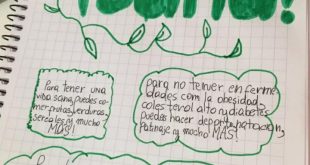 Para tener una
viba sana, puedes co-
mer frutas, verduras,
sereales y mucho
MÁS!
para no tener, enferme
dades com la obesidad
colesterol alto y diabetes
puedes hacer deporte, natacion,
Patinaje y mucho MÁS!